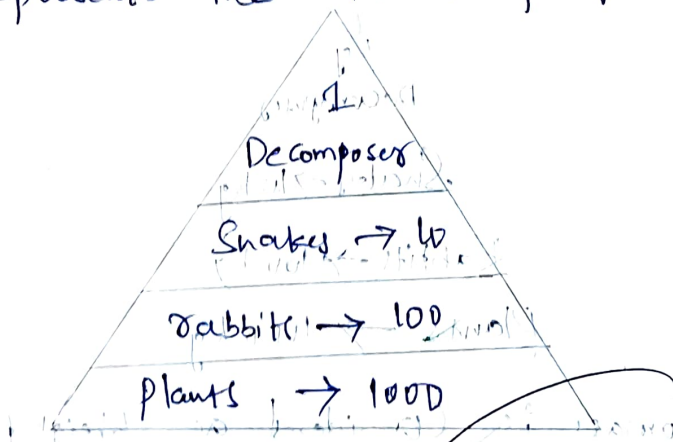 1
Decomposer
Snakes → 10
rabbits → 100
Plants → 1000